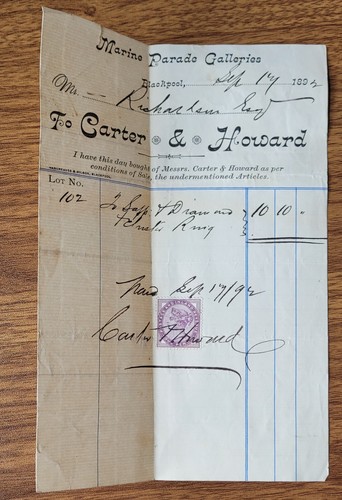 Marine Parade Galleries
Blackpool, Sep 17 1892
M Richardson Esq
To Carter & Howard
I have this day bought of Messrs. Carter & Howard as per
conditions of Sale, the undermentioned Articles.
LOT NO.
102 To Sapp & Diamond 10 10 "
Ring
Sep 17/92
Carter & Howard